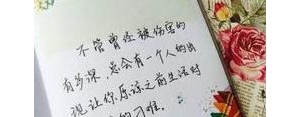 不管曾经被伤害的
有多深,总会有一个人的出
现让你,原谅之前生活对
的刁难.